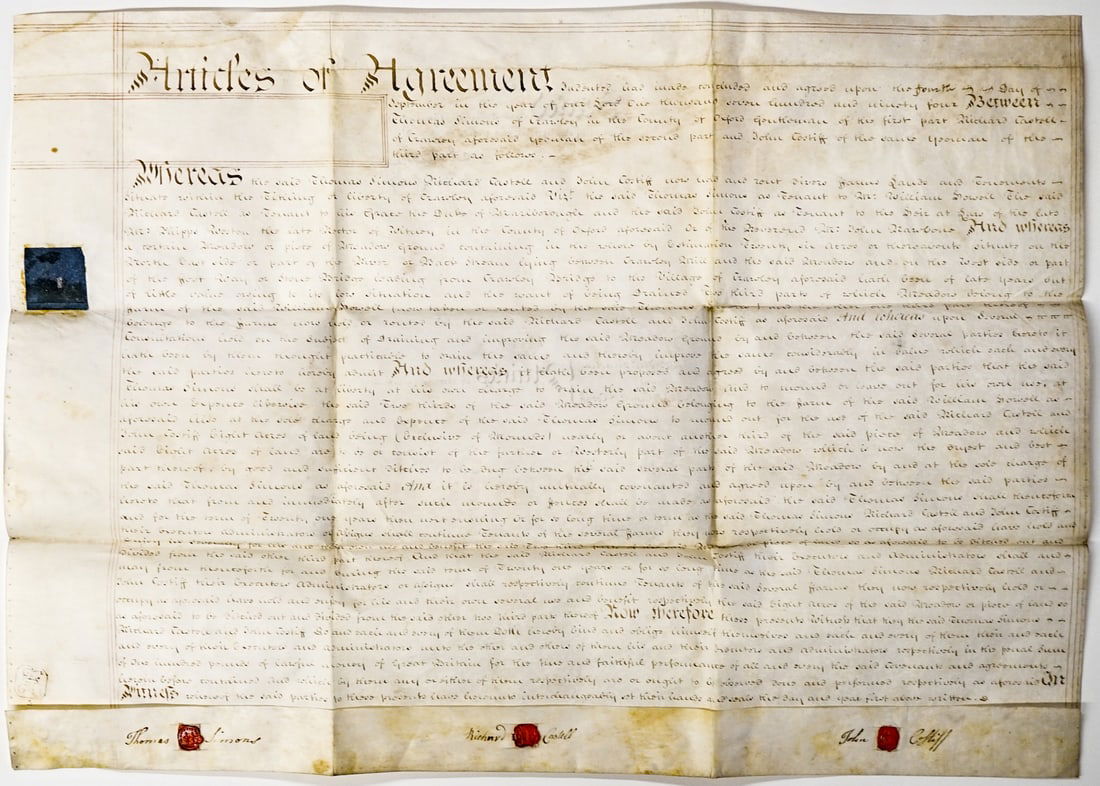 Articles of Agreement Indented had made concluded and agreed upon the fourth Day of
September in the year of our Lord One thousand seven hundred and ninety four Between
Thomas Simons of Crawley in the County of Oxford Gentleman of the first part Richard Castell
of Crawley aforesaid Yeoman of the second part and John Costiff of the same Yeoman of the
third part as follows.
Whereas the said Thomas Simons Richard Castell and John Costiff now hold and rent divers Farms Lands and Tenements
situate within the Tithing or liberty of Crawley aforesaid Vizt. the said Thomas Simons as Tenant to Mr. William Howell The said
Richard Castell as Tenant to his Grace the Duke of Marlborough and the said John Costiff as Tenant to the Heir at Law of the late
Mr. Phipps Weston the late Rector of Witney in the County of Oxford aforesaid Or the Reverend Mr. John And whereas
a certain Meadow or piece of Meadow Ground containing in the whole by Estimation Twenty six Acres or thereabouts situate on the
North East side or part of the River or Back Stream lying between Crawley Mill and the said Meadow and on the West side or part
of the Foot Way or Stone Bridge leading from Crawley Bridge to the Village of Crawley aforesaid hath been of late years but
of little value owing to its low situation and the want of being Drained two third parts of which Meadow belong to the
Farm of the said William Howell now
belongs to the Farms now held or rented by the said Richard Castell and John Costiff as aforesaid And whereas upon several
Consultations held on the subject of Draining and improving the said Meadow Ground by and between the said several parties hereto it
hath been by them thought practicable to drain the same and thereby improve the same considerably in value which each and every
the said parties hereto hereby admit And whereas it hath been proposed and agreed by and between the said parties that the said
Thomas Simons shall be at liberty at his own charge to Drain the said Meadow and to mound or have out for his own use, at
his own Expence likewise the said Two thirds of the said Meadow Ground belonging to the Farm of the said William Howell as
aforesaid And at the sole charge and expence of the said Thomas Simons to mound out for the use of the said Richard Castell and
John Costiff Eight Acres of land being (Exclusive of Mounds) nearly or about another third of the said piece of Meadow and which
said Eight Acres of land are to consist of the further or Westerly part of the said Meadow which is now the dryest and best
part thereof by good and sufficient ditches to be dug between the said several parts of the said Meadow by and at the sole charge of
the said Thomas Simons as aforesaid And it is hereby mutually covenanted and agreed upon by and between the said parties
hereto that from and immediately after such mounds or fences shall be made as aforesaid the said Thomas Simons shall thenceforth
and for the term of Twenty one years then next ensuing Or for so long time or term as the said Thomas Simons Richard Castell and John Costiff
their Executors Administrators or assigns shall continue Tenants of the several Farms they now respectively hold or occupy as aforesaid have hold and
divided from the other third part thereof And that the said Richard Castell and John Costiff their Executors and Administrators shall and
may from thenceforth for and during the said term of Twenty one years or for so long time as the said Thomas Simons Richard Castell and
John Costiff their Executors Administrators or assigns shall respectively continue Tenants of the said several Farms they now respectively hold
occupy as aforesaid have hold and enjoy for his and their own several use and benefit respectively the said Eight Acres of the said Meadow or piece of land so
as aforesaid to be ditched out and divided from the said other two third parts thereof Now Therefore these presents Witness that they the said Thomas Simons
Richard Castell and John Costiff Do and each and every of them Doth hereby bind and oblige himself themselves and each and every of them their and each
and every of their Executors and Administrators unto the other and others of them his and their Executors and Administrators respectively in the penal Sum
of One hundred pounds of lawful money of Great Britain for the true and faithful performance of all and every the said Covenants and agreements
herein before contained and which by them any or either of them respectively are or ought to be observed done and performed respectively as aforesaid In
Witness whereof the said parties to these presents have hereunto interchangeably set their hands and seals the day and year first above written.
Thomas Simons
Richard Castell
John Costiff